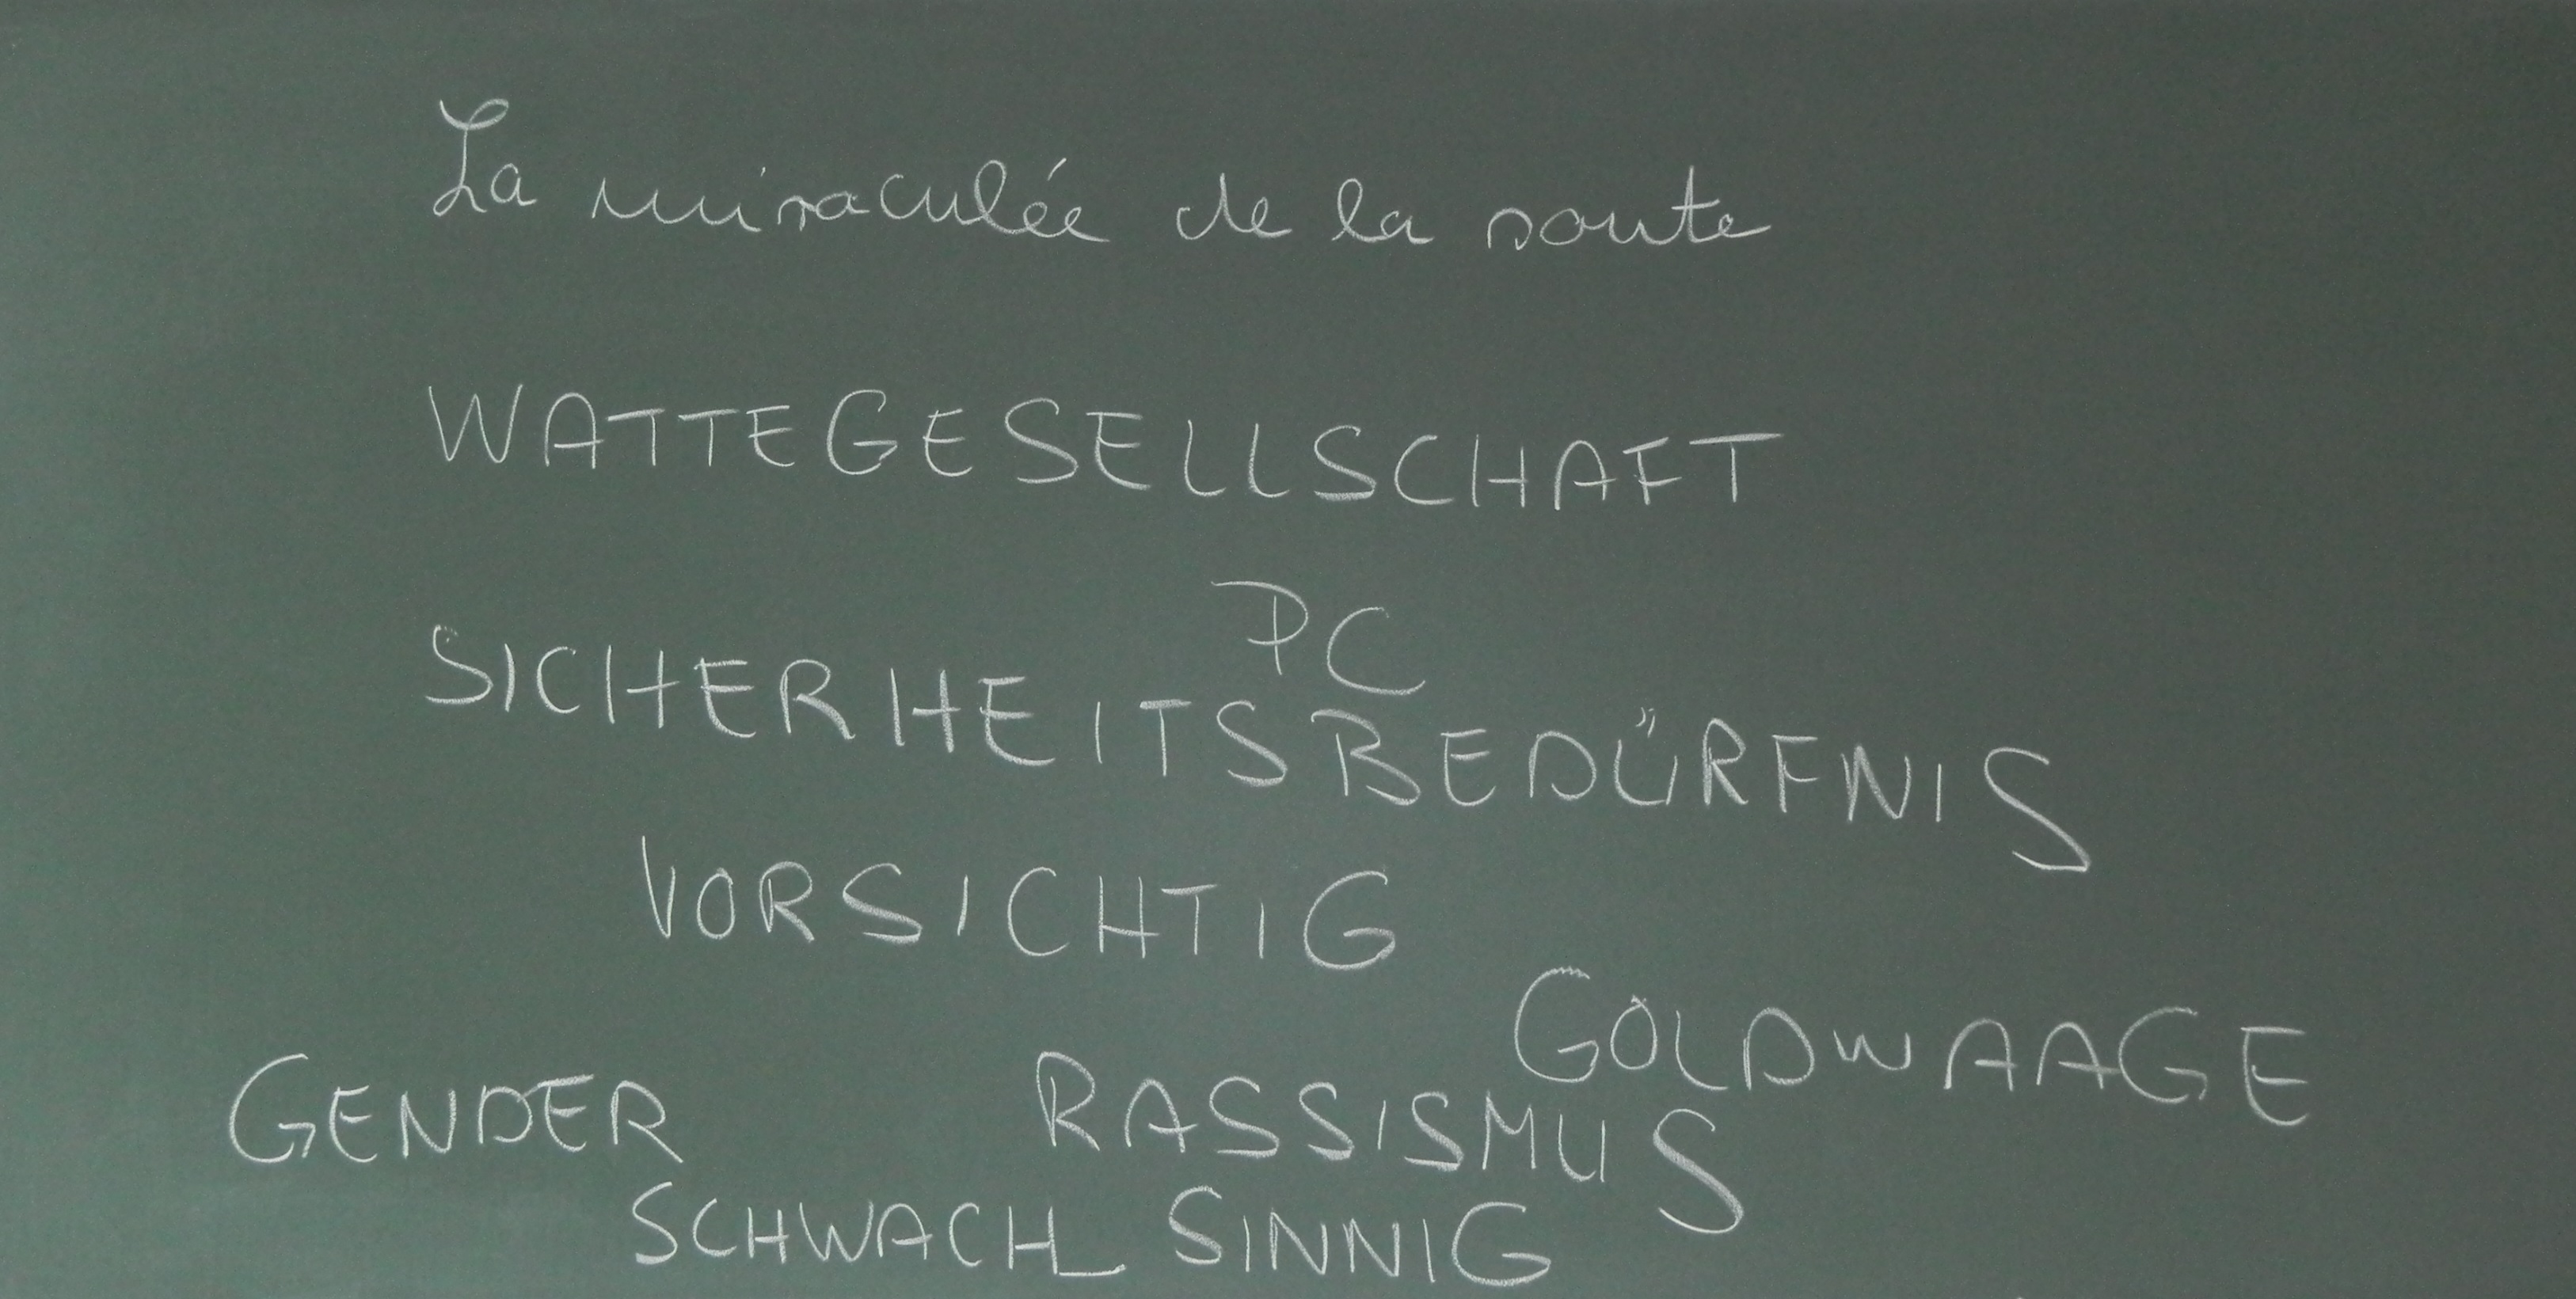 La miraculée de la route
WATTEGESELLSCHAFT
PC
SICHERHEITSBEDÜRFNIS
VORSICHTIG
GOLDWAAGE
GENDER RASSISMUS
SCHWACH SINNIG